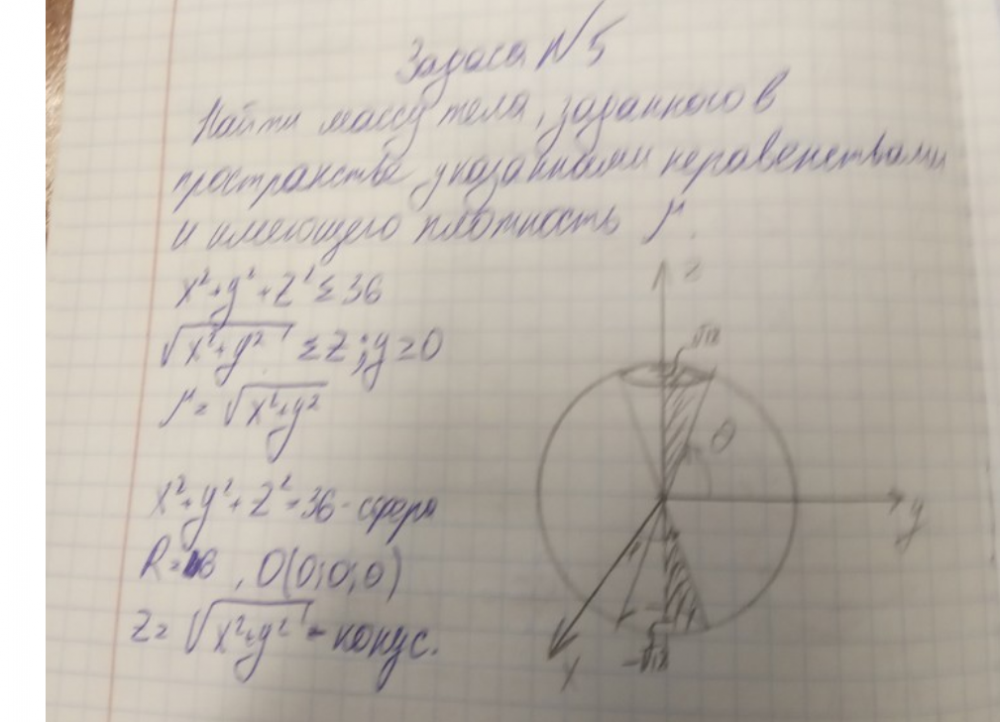 Задача №5
Найти массу тела, заданного в
пространстве указанными неравенствами
и имеющего плотность μ.
x²+y²+z² ≤ 36
√(x²+y²) ≤ z; y ≥ 0
μ = √(x²+y²)
x²+y²+z² = 36 - сфера
R = 6, O(0;0;0)
z = √(x²+y²) - конус.
z
√18
θ
y
-√18
x